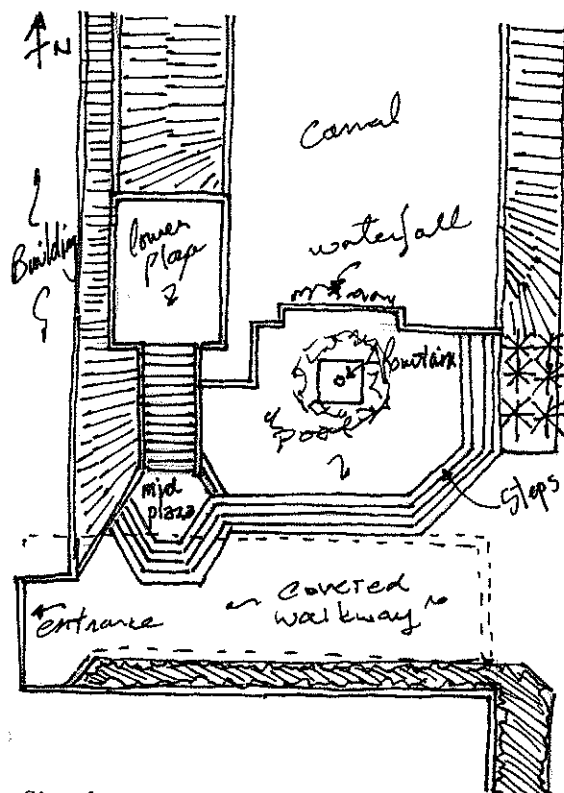 N
canal
Building
lower
plaza
waterfall
fountain
pool
mid
plaza
steps
entrance
covered
walkway